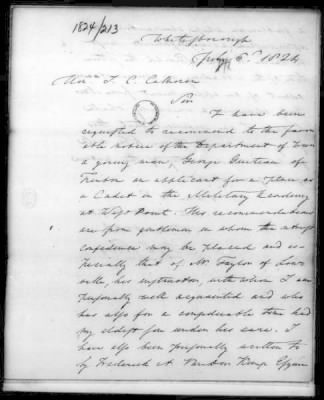 1824/213
Whitesborough
July 6th 1824
Hon J. C. Calhoun
Sir
I have been
requested to recommend to the favor
able notice of the Department of War
a young man, George
Trenton an applicant for a place as
a Cadet in the Military Academy
at West Point. His recommendations
are from gentlemen in whom the utmost
confidence may be placed and es-
pecially that of Mr Taylor of Low
ville, his instructor, with whom I am
personally well acquainted and who
has also for a considerable time had
my eldest son under his care. I
have also been personally written to
by Frederick A Vanden Kemp Esquire